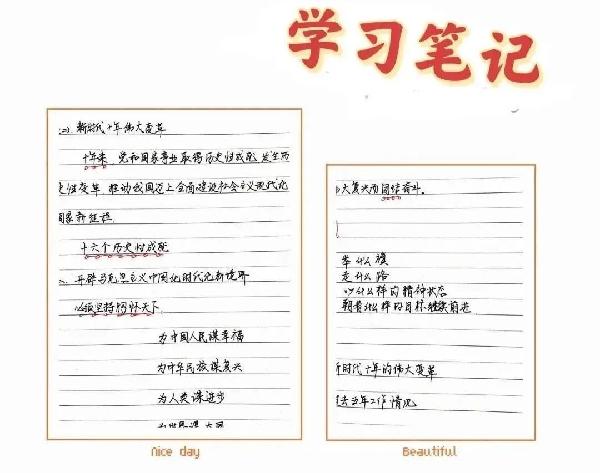 学习笔记
(二)新时代十年伟大变革
十年来，党和国家事业取得历史性成就、发生历
史性变革，推动我国迈上全面建设社会主义现代化
国家新征程
十六个历史性成就
二、开辟马克思主义中国化时代化新境界
必须坚持胸怀天下
为中国人民谋幸福
为中华民族谋复兴
为人类谋进步
为世界谋大同
Nice day
大复兴而团结奋斗。
举什么旗
走什么路
以什么样的精神状态
朝着什么样的目标继续前进
时代十年的伟大变革
去当年工作情况
Beautiful